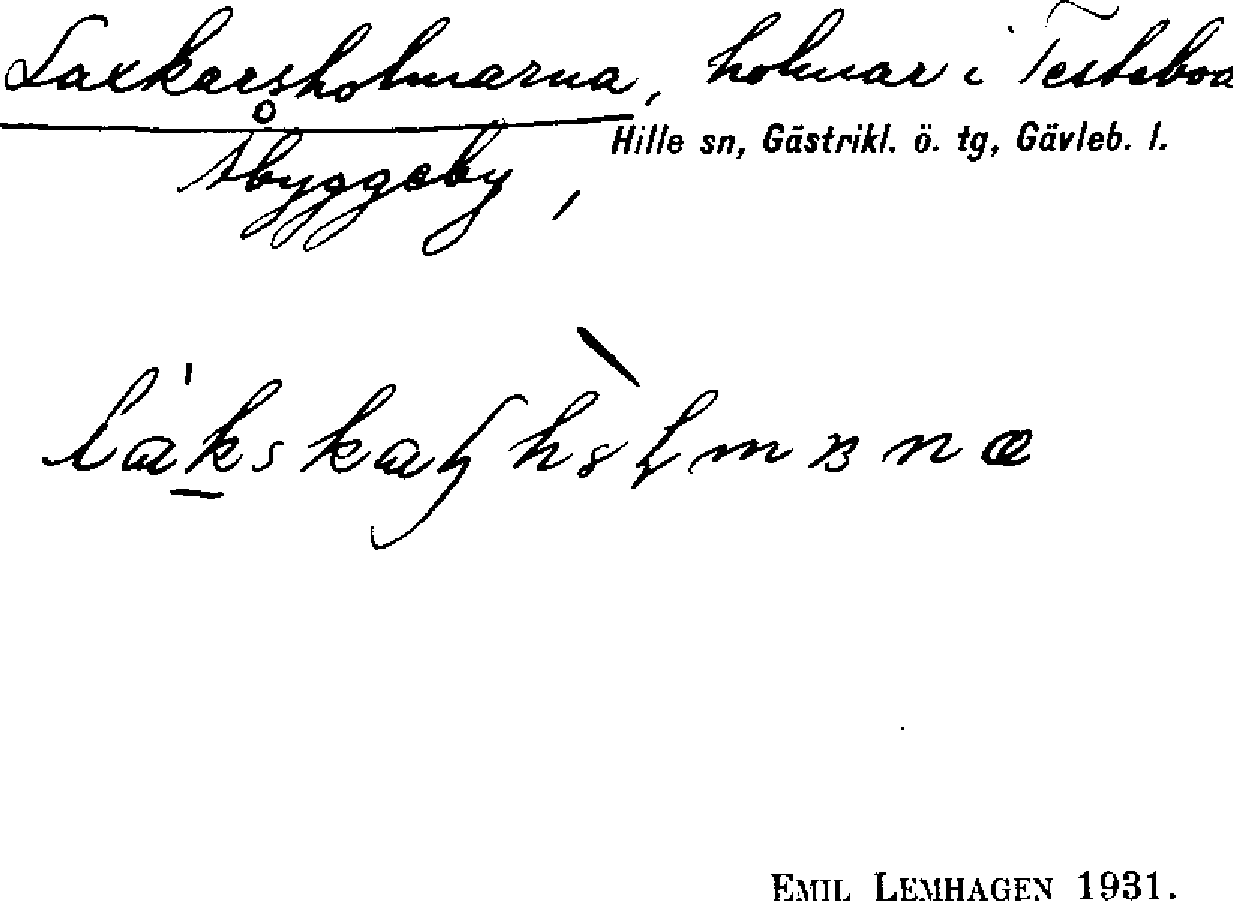 Laxkarsholmarna, holmar i Testeboå
Åbyggeby,
Hille sn, Gästrikl. ö. tg, Gävleb. l.
EMIL LEMHAGEN 1931.